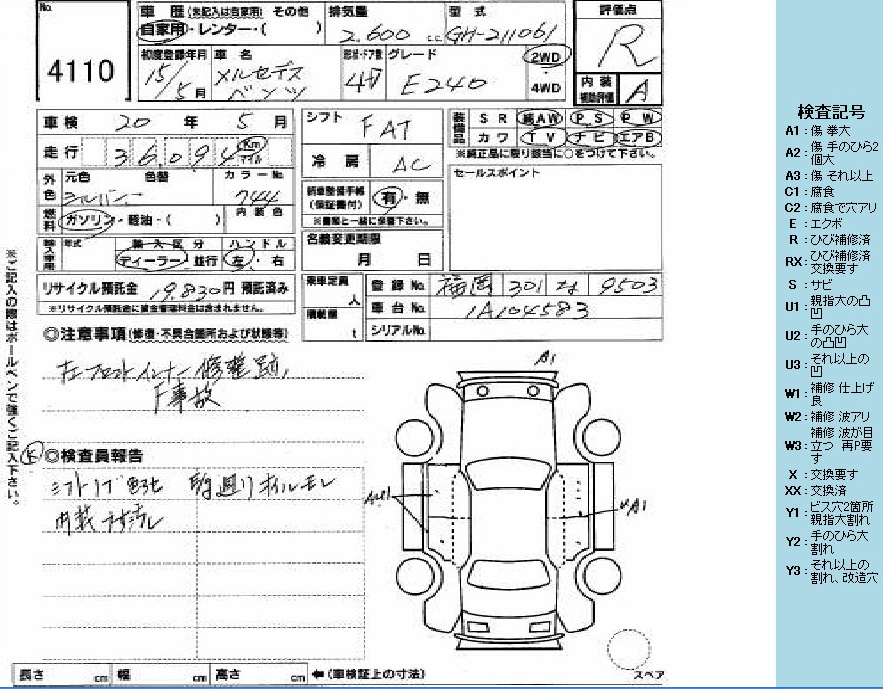 No.
4110
車歴 (未記入は自家用) その他
自家用・レンター・( )
排気量
2.600 cc
型式
GH-211061
評価点
R
初度登録年月
15/5月
車名
メルセデス
ベンツ
形状・ドア数
4D
グレード
E240
2WD
4WD
内装
補助評価
A
車検 20年 5月
走行 36,094 Km マイル
外色
元色 色替 カラーNo.
シルバー 744
燃料
ガソリン・軽油・( )
内装色
輸入車用
年式
輸入区分
ディーラー・並行
ハンドル
左・右
シフト
FAT
冷房
AC
装備品
SR 純AW PS PW
カワ TV ナビ エアB
※純正品に限り該当に○をつけて下さい。
新車整備手帳
(保証書付)
有・無
※書類と一緒に保管下さい。
名義変更期限
月 日
セールスポイント
リサイクル預託金 19,830円 預託済み
※リサイクル預託金に資金管理料金は含まれません。
乗車定員
人
積載量
t
登録No. 福岡 301 な 9503
車台No. 1A104583
シリアルNo.
◎注意事項 (修復・不具合箇所および状態等)
左フロントインナー修整跡、
F事故
◎検査員報告
内装
長さ cm 幅 cm 高さ cm ←(車検証上の寸法)
※ご記入の際はボールペンで強くご記入下さい。
A1
A1
スペア
検査記号
A1:傷 拳大
A2:傷 手のひら2個大
A3:傷 それ以上
C1:腐食
C2:腐食で穴アリ
E:エクボ
R:ひび補修済
RX:ひび補修済 交換要す
S:サビ
U1:親指大の凸凹
U2:手のひら大の凸凹
U3:それ以上の凹
W1:補修 仕上げ良
W2:補修 波アリ
W3:補修 波が目立つ 再P要す
X:交換要す
XX:交換済
Y1:ビス穴2箇所 親指大割れ
Y2:手のひら大割れ
Y3:それ以上の割れ、改造穴